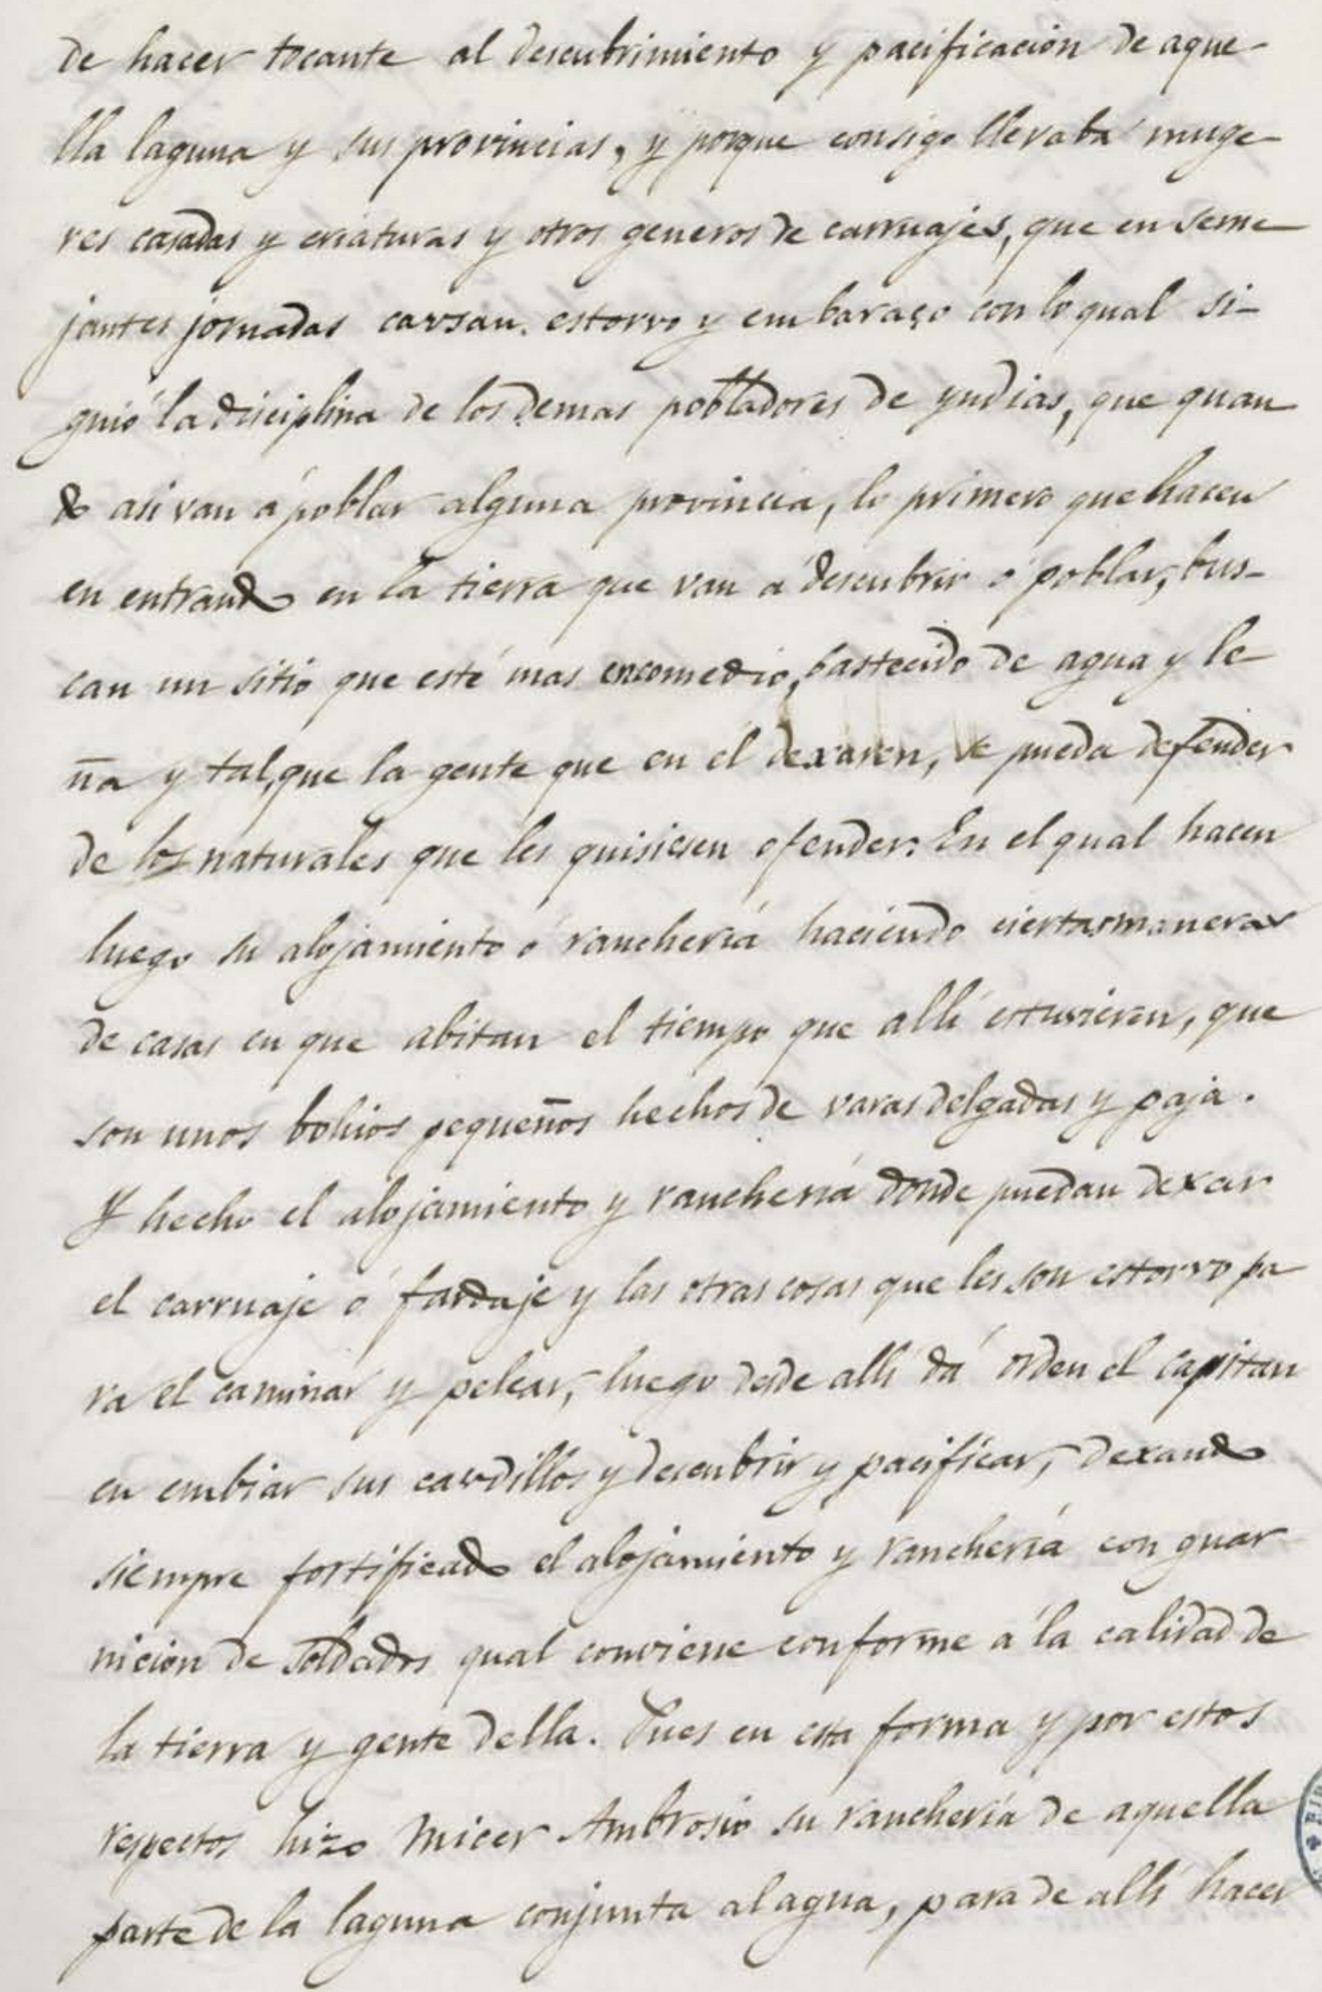 de hacer tocante al descubrimiento y pacificacion de aque-
lla laguna y sus provincias, y porque consigo llevaba muge-
res casadas y criaturas y otros generos de carruajes, que en seme
jantes jornadas cavsan estorvo y embaraço con lo qual si-
guió la disciplina de los demas pobladores de yndias, que quan
do asi van á poblar alguna provincia, lo primero que hacen
en entrando en la tierra que van a descubrir o poblar, bus-
can un sitio que esté mas encomedio, bastecido de agua y le
ña y tal, que la gente que en él dexaren, se pueda defender
de los naturales que les quisiesen ofender: En el qual hacen
luego su alojamiento ó ranchería haciendo ciertas maneras
de casas en que abitan el tiempo que allí estuvieren, que
son unos bohios pequeños hechos de varas delgadas y paja.
Y hecho el alojamiento y ranchería donde puedan dexar
el carruaje ó fardaje y las otras cosas que les son estorvo pa
ra el caminar y pelear, luego desde allí dá orden el capitan
en embiar sus cavdillos y descubrir y pacificar, dexando
siempre fortificado el alojamiento y ranchería con guar
nicion de soldados qual conviene conforme á la calidad de
la tierra y gente della. Pues en esta forma y por estos
respectos hizo Micer Ambrosio su ranchería de aquella
parte de la laguna conjunta al agua, para de allí hacer